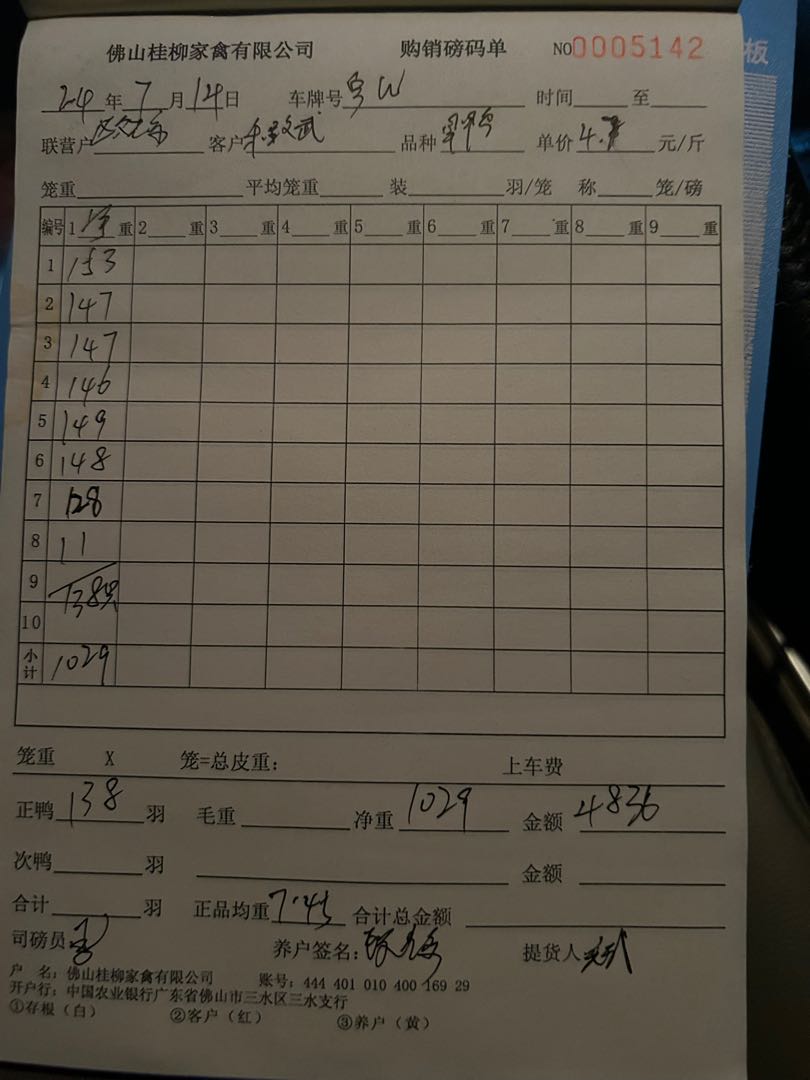 佛山桂柳家禽有限公司 购销磅码单 NO0005142
24年7月14日 车牌号 时间 至
联营户 客户 文武 品种 单价4.7元/斤
笼重 平均笼重 装 羽/笼 称 笼/磅
编号 1净重 2 重 3 重 4 重 5 重 6 重 7 重 8 重 9 重
1 153
2 147
3 147
4 146
5 149
6 148
7 128
8 11
9 138只
10
小计 1029
笼重 X 笼=总皮重: 上车费
正鸭138羽 毛重 净重1029 金额4836
次鸭 羽 金额
合计 羽 正品均重7.45 合计总金额
司磅员 养户签名: 提货人
户 名:佛山桂柳家禽有限公司 账号:444 401 010 400 169 29
开户行:中国农业银行广东省佛山市三水区三水支行
①存根(白) ②客户(红) ③养户(黄)
板